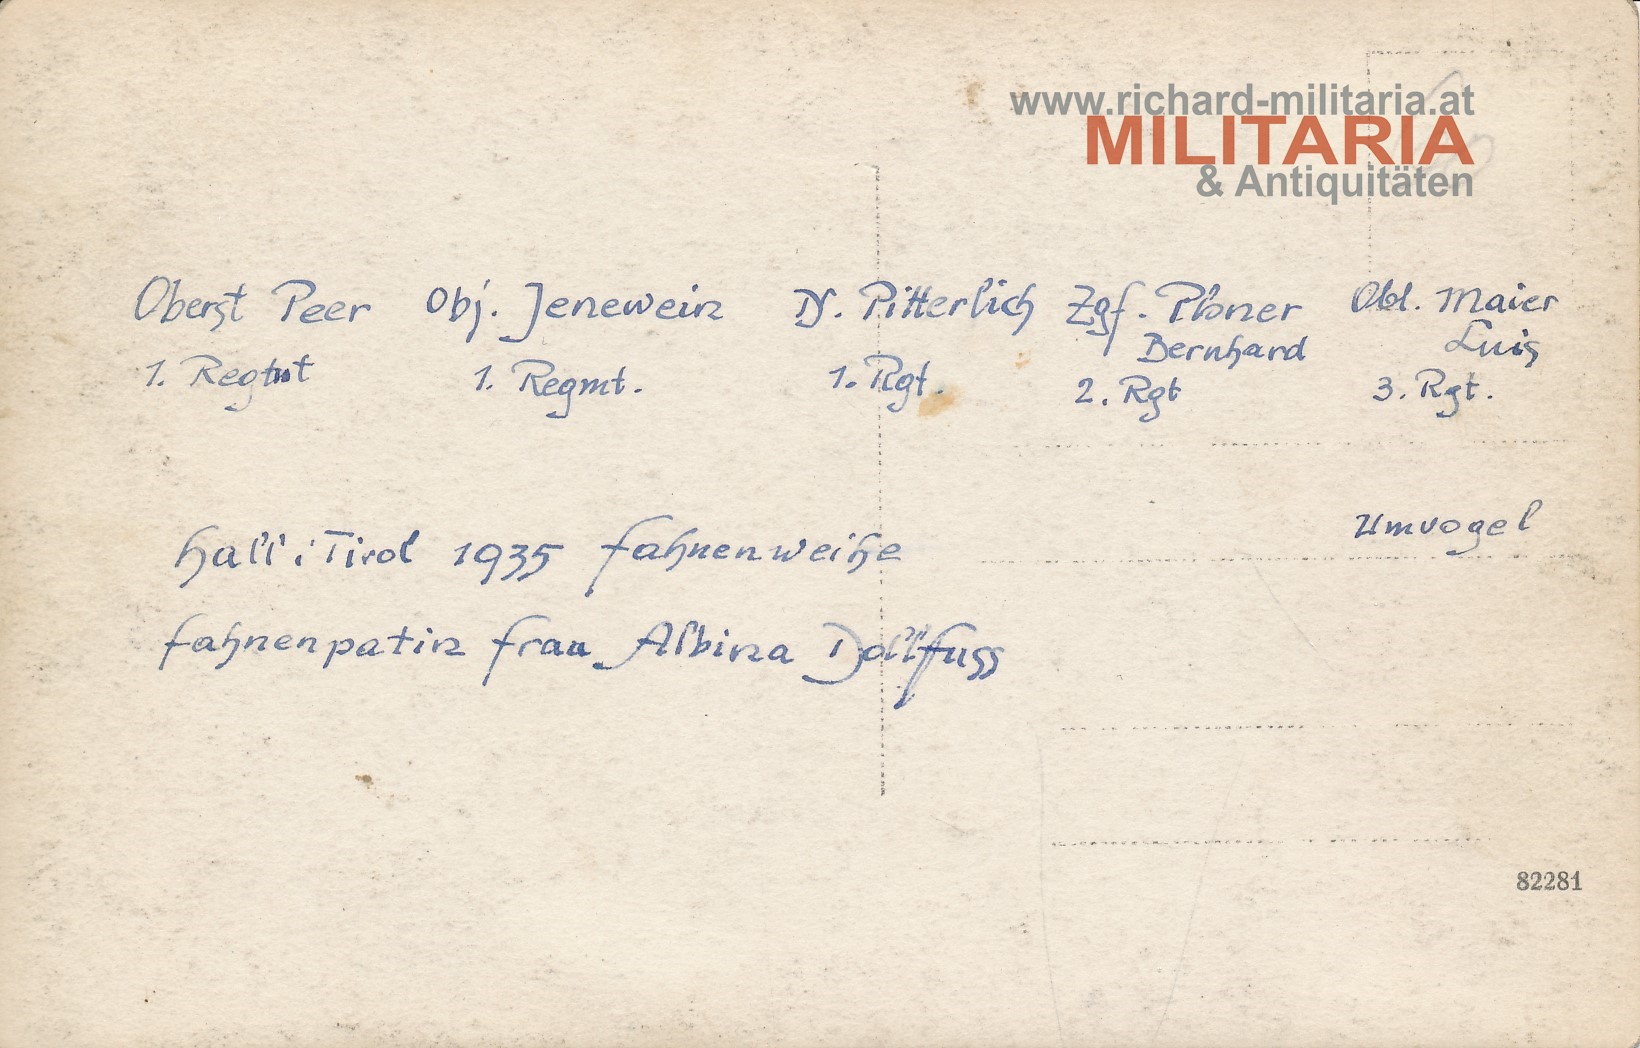 www.richard-militaria.at
MILITARIA
& Antiquitäten
Oberst Peer Obj. Jenewein Df. Pitterlich Zgf. Ploner Obl. Maier
Bernhard Luis
1. Regtmt 1. Regmt. 1. Rgt. 2. Rgt 3. Rgt.
Umvogel
Hall i Tirol 1935 Fahnenweihe
Fahnenpatin Frau Albina Dollfuss
82281